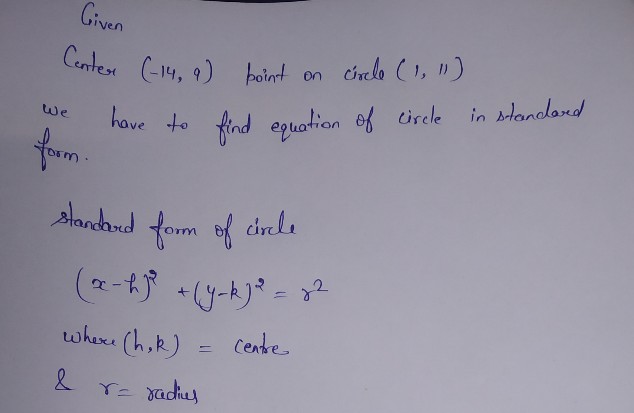 Given
Center (-14, 9) point on circle (1, 11)
we have to find equation of circle in standard
form.
standard form of circle
(x-h)² + (y-k)² = r²
where (h,k) = centre
& r = radius